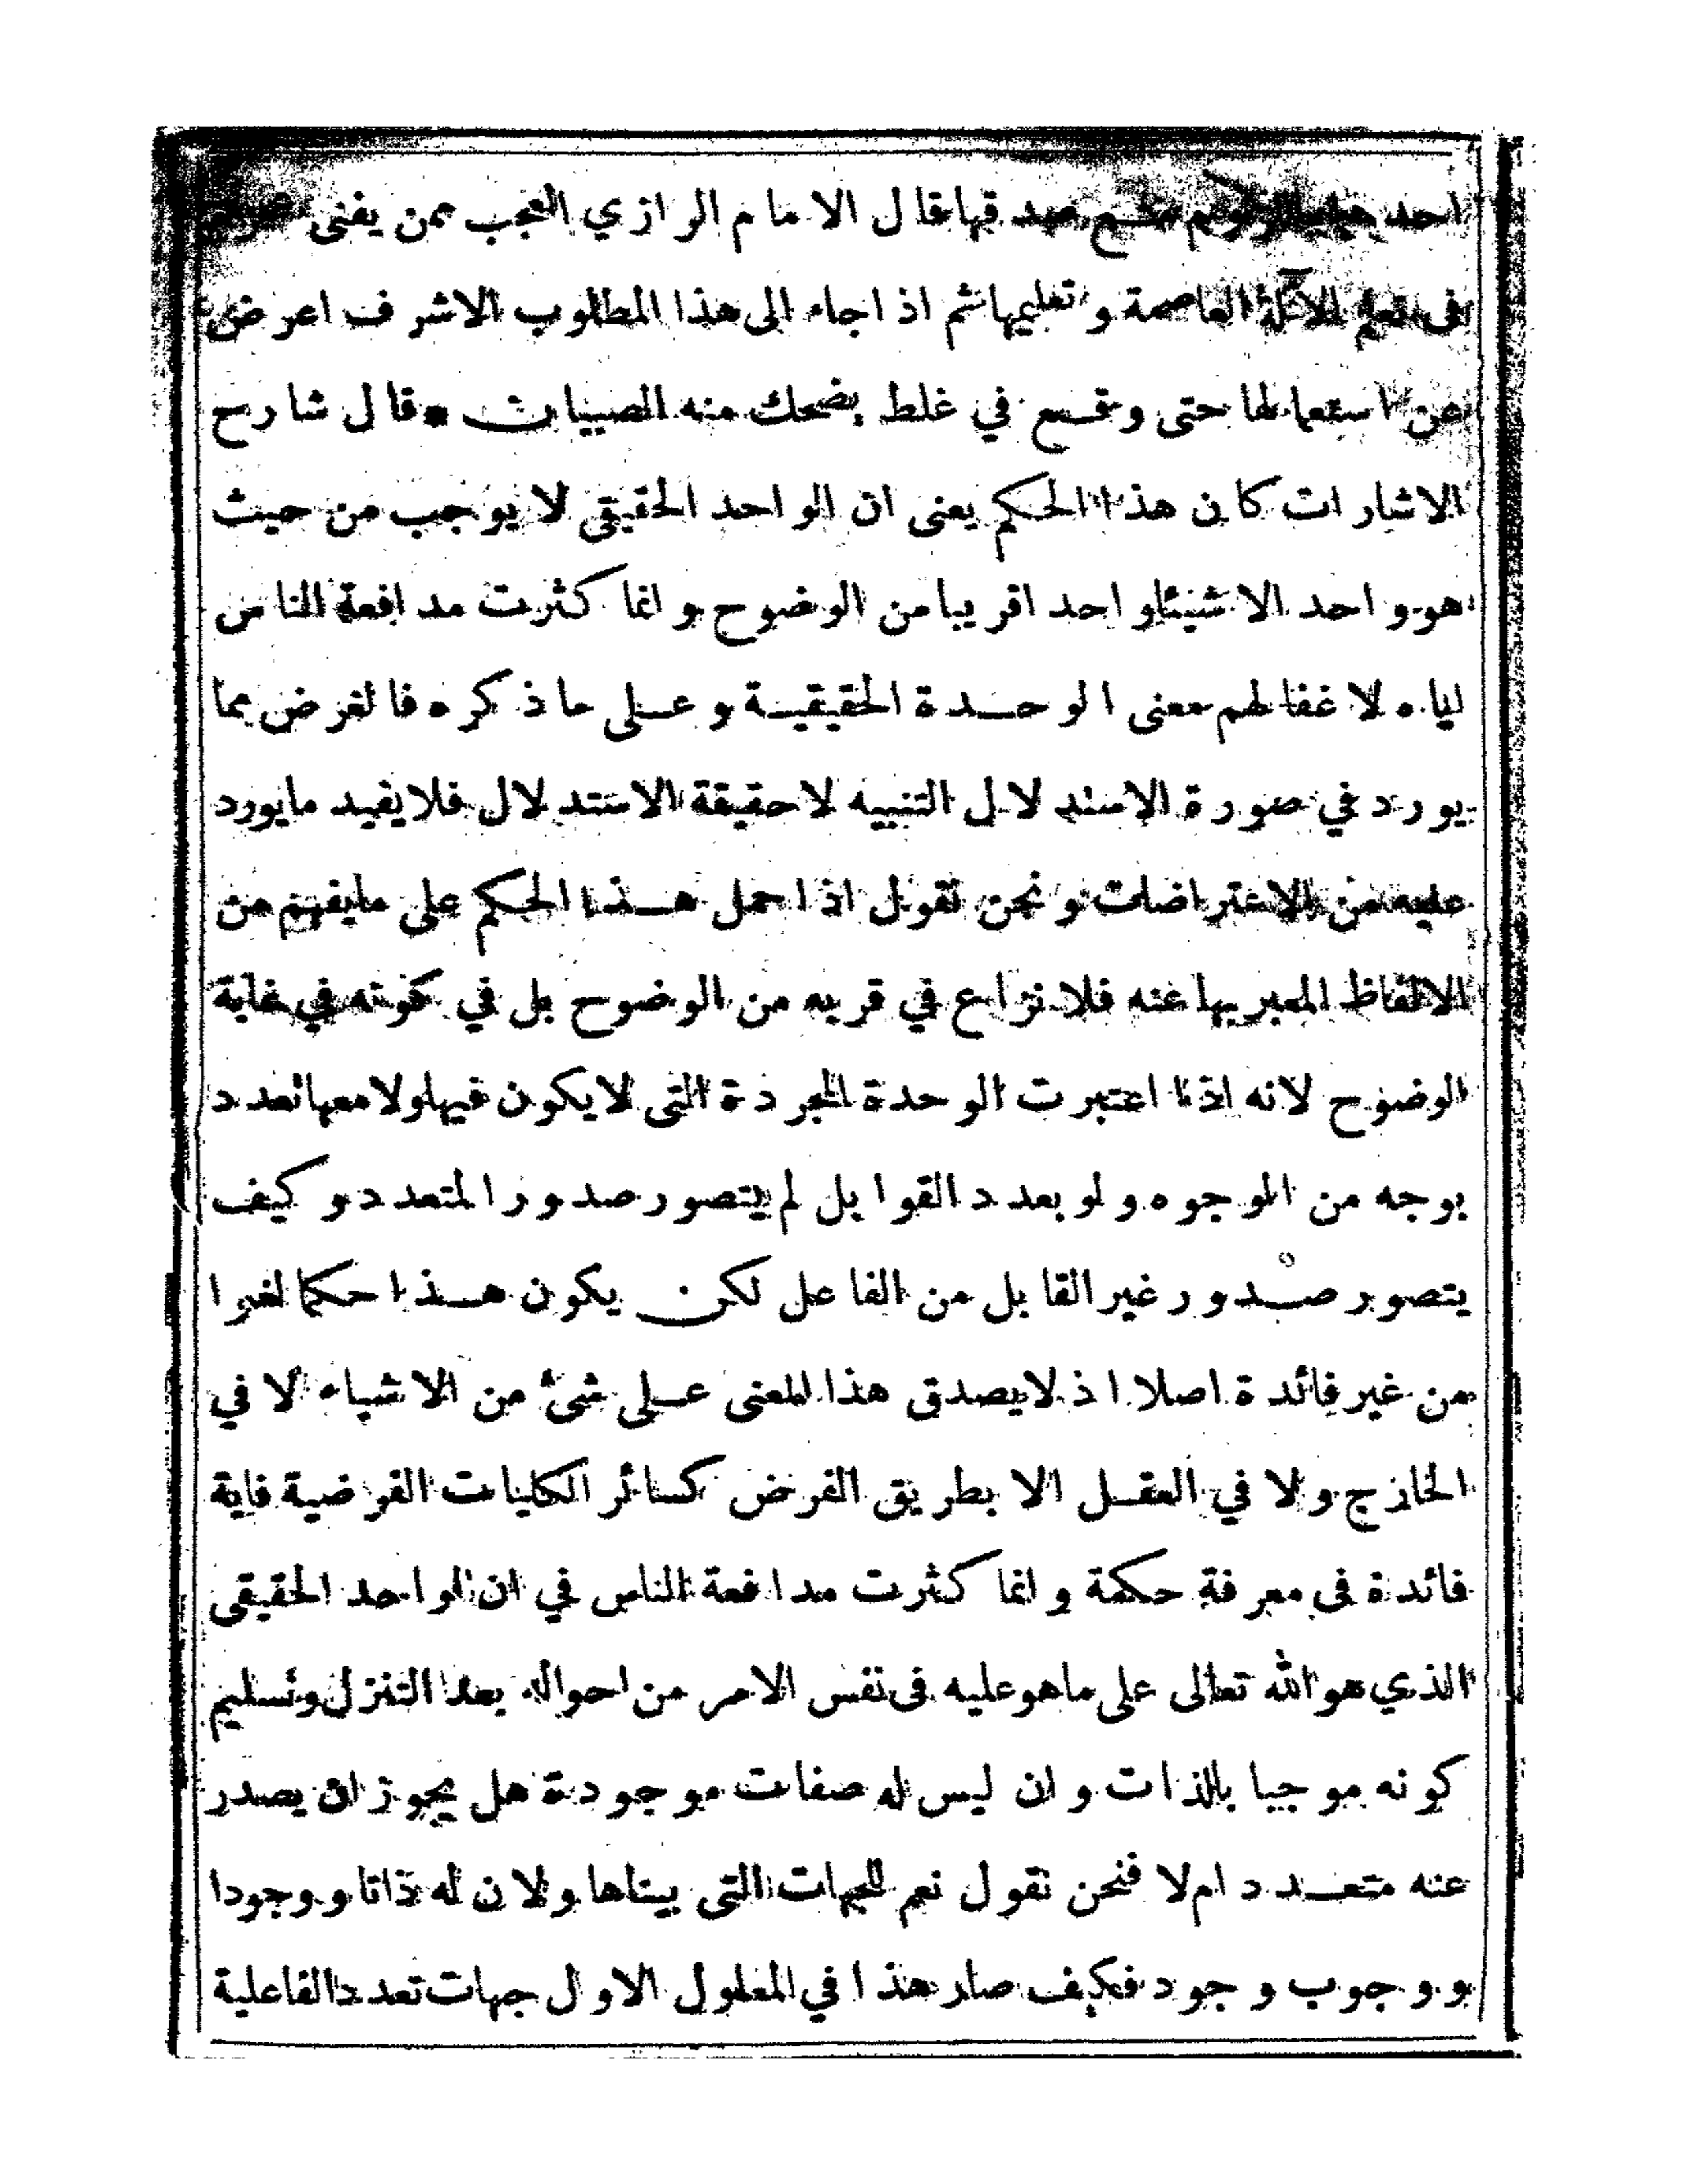 احد صدقها قال الامام الرازي العجب ممن يفنى
فى تعلم الآلة العاصمة و تعليمها ثم اذا جاء الى هذا المطلوب الاشرف اعرض
عن استعمالها حتى وقع في غلط يضحك منه الصبيان * قال شارح
الاشارات كان هذا الحكم يعنى ان الواحد الحقيقى لا يوجب من حيث
هو واحد الا شيئا واحد اقريبا من الوضوح و انما كثرت مدافعة الناس
اياه لا غفالهم معنى الوحدة الحقيقية و على ما ذكره فالغرض مما
يورد في صورة الاستدلال التنبيه لا حقيقة الاستدلال فلا يفيد ما يورد
عليه من الاعتراضات و نحن نقول اذا حمل هذا الحكم على ما يفهم من
الالفاظ المعبر بها عنه فلا نزاع في قربه من الوضوح بل في كونه في غاية
الوضوح لانه اذا اعتبرت الوحدة المجردة التى لا يكون فيها ولا معها تعدد
بوجه من الوجوه و لو بعدد القوابل لم يتصور صدور المتعدد و كيف
يتصور صدور غير القابل من الفاعل لكن يكون هذا حكما لغوا
من غير فائدة اصلا اذ لا يصدق هذا المعنى على شئ من الاشياء لا في
الخارج ولا في العقل الا بطريق الفرض كسائر الكليات الفرضية فاية
فائدة فى معرفة حكمة و انما كثرت مدافعة الناس في ان الواحد الحقيقى
الذي هو الله تعالى على ما هو عليه فى نفس الامر من احواله بعد التنزل و تسليم
كونه موجبا بالذات و ان ليس له صفات موجودة هل يجوز ان يصدر
عنه متعدد ام لا فنحن نقول نعم للجهات التى بيناها و لان له ذاتا و وجودا
و وجوب وجود فكيف صار هذا في المعلول الاول جهات تعدد الفاعلية